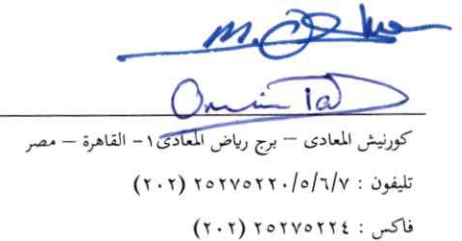 كورنيش المعادى – برج رياض المعادى ١ – القاهرة – مصر
تليفون : ٢٥٢٧٥٢٢٠/٥/٦/٧ (٢٠٢)
فاكس : ٢٥٢٧٥٢٢٤ (٢٠٢)